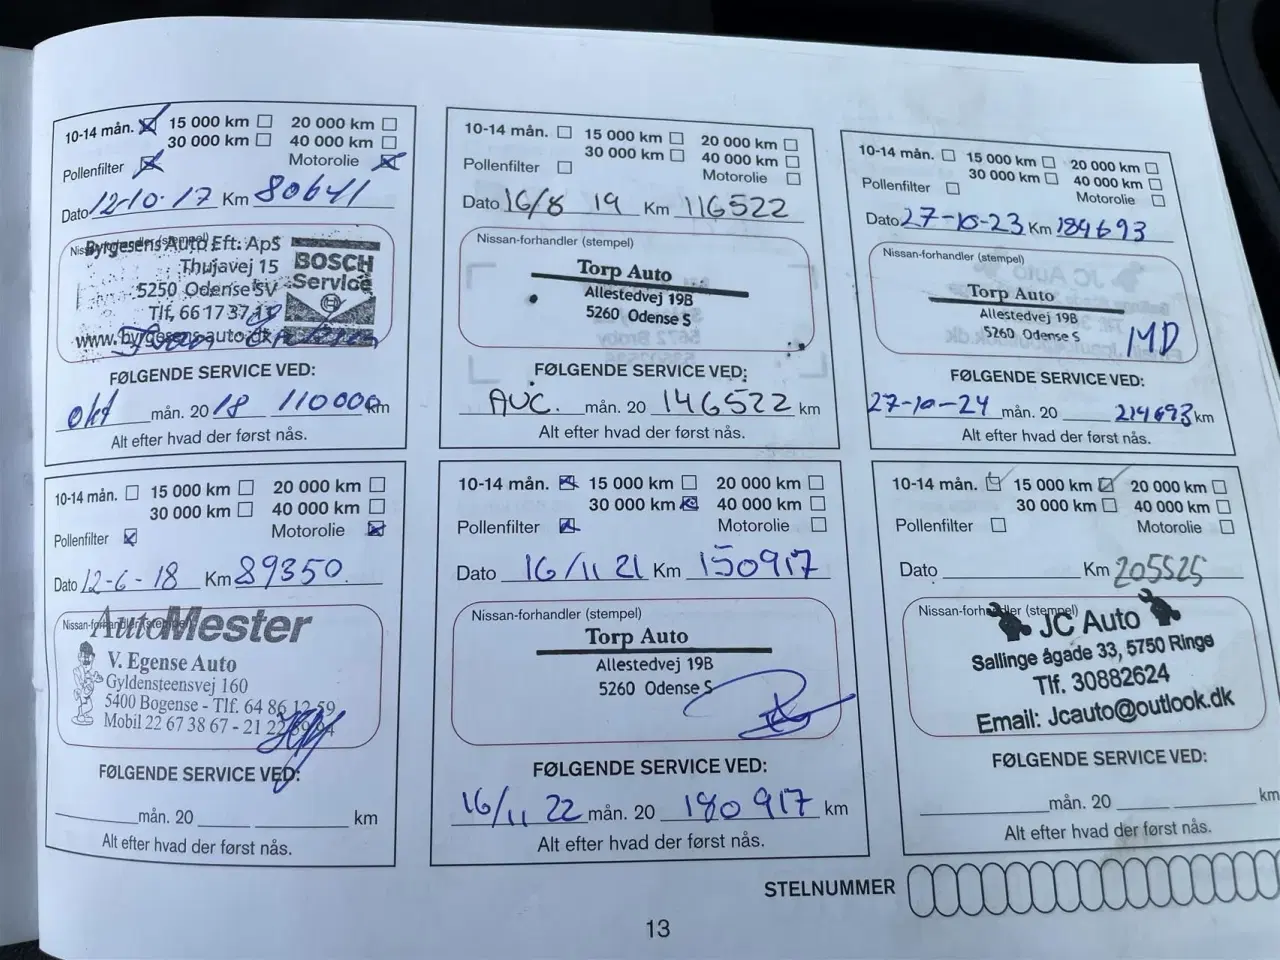 10-14 mån. 15 000 km 20 000 km
30 000 km 40 000 km
Pollenfilter Motorolie
Dato 12-10-17 Km 80641
Nissan-forhandler (stempel)
Byrgesens Auto Eft. ApS
Thujavej 15
5250 Odense SV
Tlf. 66 17 37
www.byrgesens-auto.dk
BOSCH
Service
FØLGENDE SERVICE VED:
okt mån. 20 18 110000 km
Alt efter hvad der først nås.
10-14 mån. 15 000 km 20 000 km
30 000 km 40 000 km
Pollenfilter Motorolie
Dato 12-6-18 Km 89350
Nissan-forhandler (stempel)
AutoMester
V. Egense Auto
Gyldensteensvej 160
5400 Bogense - Tlf. 64 86 12 59
Mobil 22 67 38 67 - 21 22
FØLGENDE SERVICE VED:
mån. 20 km
Alt efter hvad der først nås.
10-14 mån. 15 000 km 20 000 km
30 000 km 40 000 km
Pollenfilter Motorolie
Dato 16/8 19 Km 116522
Nissan-forhandler (stempel)
Torp Auto
Allestedvej 19B
5260 Odense S
FØLGENDE SERVICE VED:
AUG. mån. 20 146522 km
Alt efter hvad der først nås.
10-14 mån. 15 000 km 20 000 km
30 000 km 40 000 km
Pollenfilter Motorolie
Dato 16/11 21 Km 150917
Nissan-forhandler (stempel)
Torp Auto
Allestedvej 19B
5260 Odense S
FØLGENDE SERVICE VED:
16/11 22 mån. 20 180917 km
Alt efter hvad der først nås.
10-14 mån. 15 000 km 20 000 km
30 000 km 40 000 km
Pollenfilter Motorolie
Dato 27-10-23 Km 184693
Nissan-forhandler (stempel)
Torp Auto
Allestedvej 19B
5260 Odense S
MD
FØLGENDE SERVICE VED:
27-10-24 mån. 20 214693 km
Alt efter hvad der først nås.
10-14 mån. 15 000 km 20 000 km
30 000 km 40 000 km
Pollenfilter Motorolie
Dato Km 205525
Nissan-forhandler (stempel)
JC Auto
Sallinge ågade 33, 5750 Ringe
Tlf. 30882624
Email: Jcauto@outlook.dk
FØLGENDE SERVICE VED:
mån. 20 km
Alt efter hvad der først nås.
STELNUMMER
13